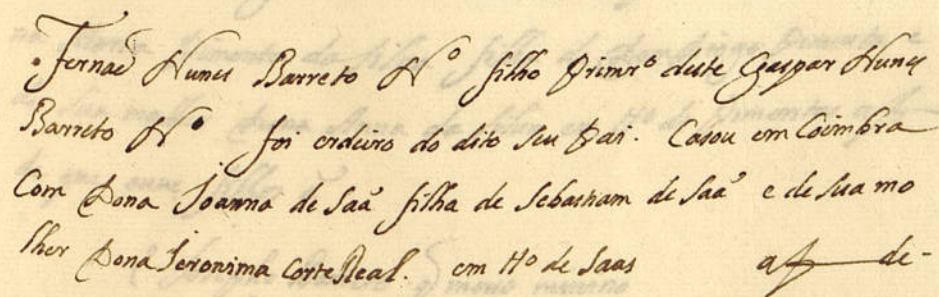 Fernaõ Nunes Barreto Nº filho primrº deste Gaspar Nunes
Barreto Nº foi erdeiro do dito seu pai. Casou em Coimbra
Com Dona Joanna de Saã filha de Sebastiam de Saã e de sua mo
lher Dona Jeronima Corte Real. em ttº de Saas de-